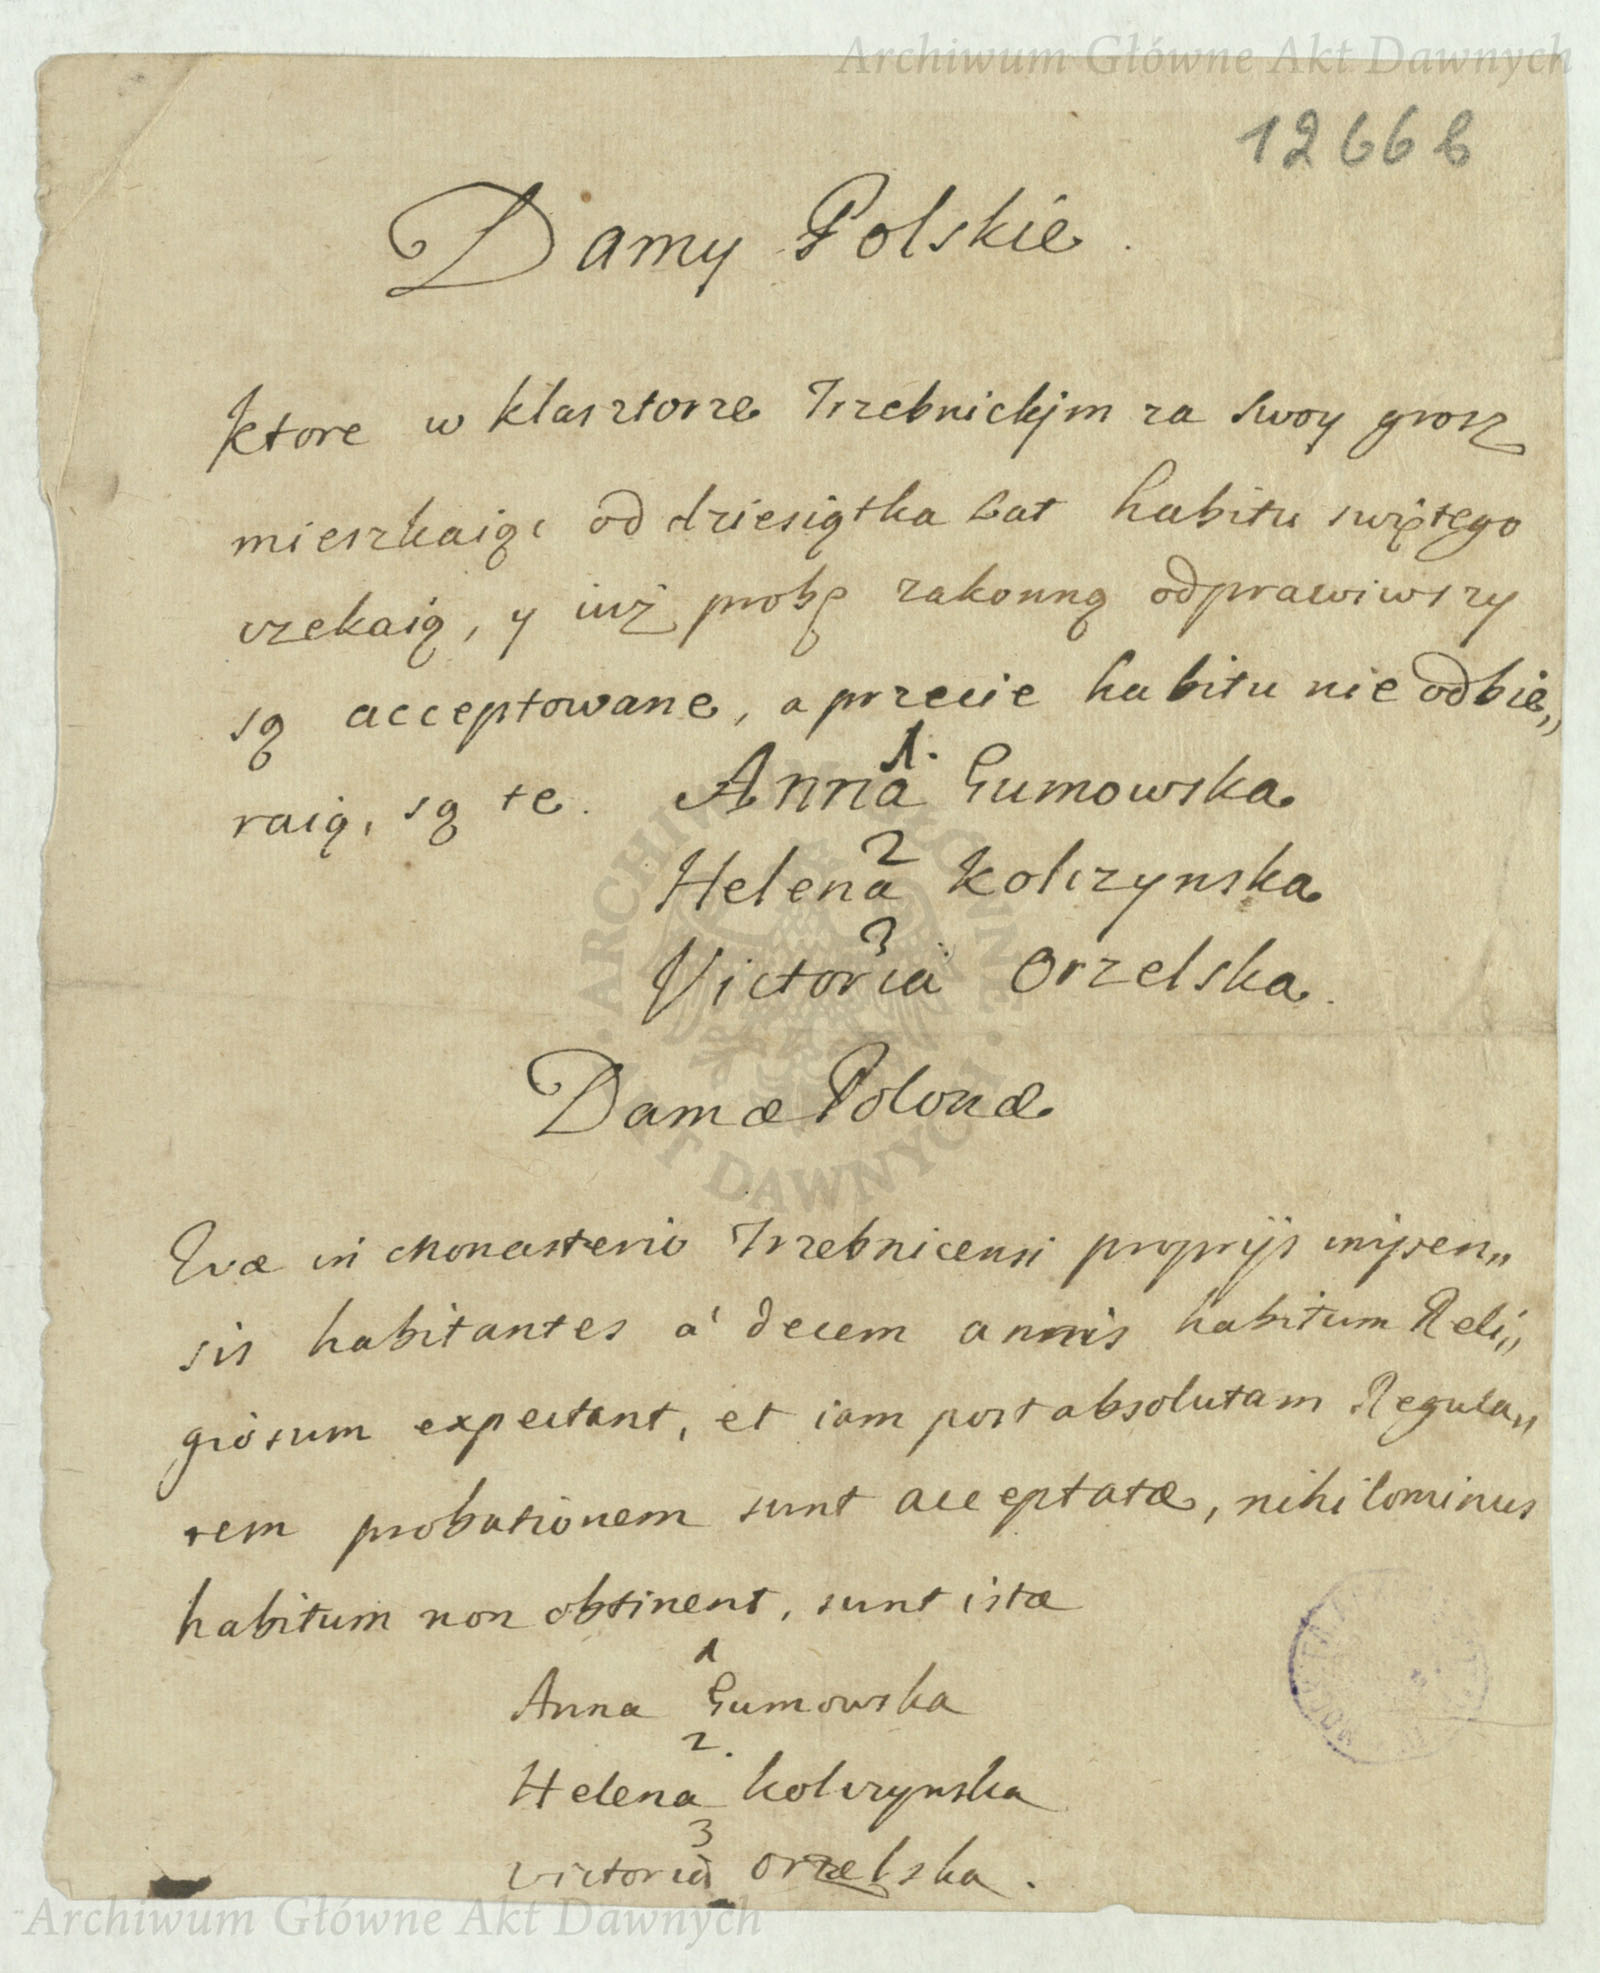 Archiwum Główne Akt Dawnych
1266b
Damy Polskie.
Ktore w Klasztorze Trzebnickjm za swoy grosz
mieszkaią, od dziesiątka Lat habitu swiętego
czekaią, y iuż probę zakonną odprawiwszy
są acceptowane, a przecie habitu nie odbie„
raią, są te. Anna 1. Gumowska
Helena 2 Kolczynska
Victoria 3 Orzelska.
Damæ Polonæ
Quæ in Monasterio Trzebnicensi proprijs impen„
sis habitantes á decem annis habitum Reli„
giosum expectant, et iam post absolutam Regula„
rem probationem sunt acceptatæ, nihilominus
habitum non obtinent, sunt istæ
1
Anna Gumowska
2.
Helena Kolczynska
3
Victoria Orzelska.
Archiwum Główne Akt Dawnych
ARCHIWUM GŁÓWNE AKT DAWNYCH